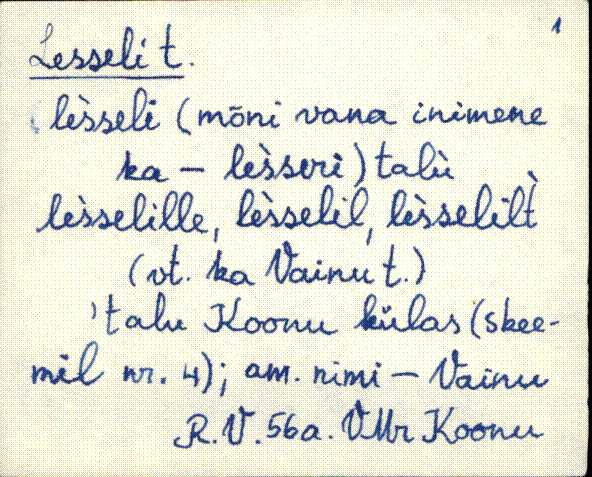 1
Lesseli t.
lèsseli (mõni vana inimene
ka – lèsseri) talù
lèsselille, lèsselil, lèsselilt̀
(vt. ka Vainu t.)
'talu Koonu külas (skee-
mil nr. 4); am. nimi – Vainu
R.V. 56a. VMr Koonu